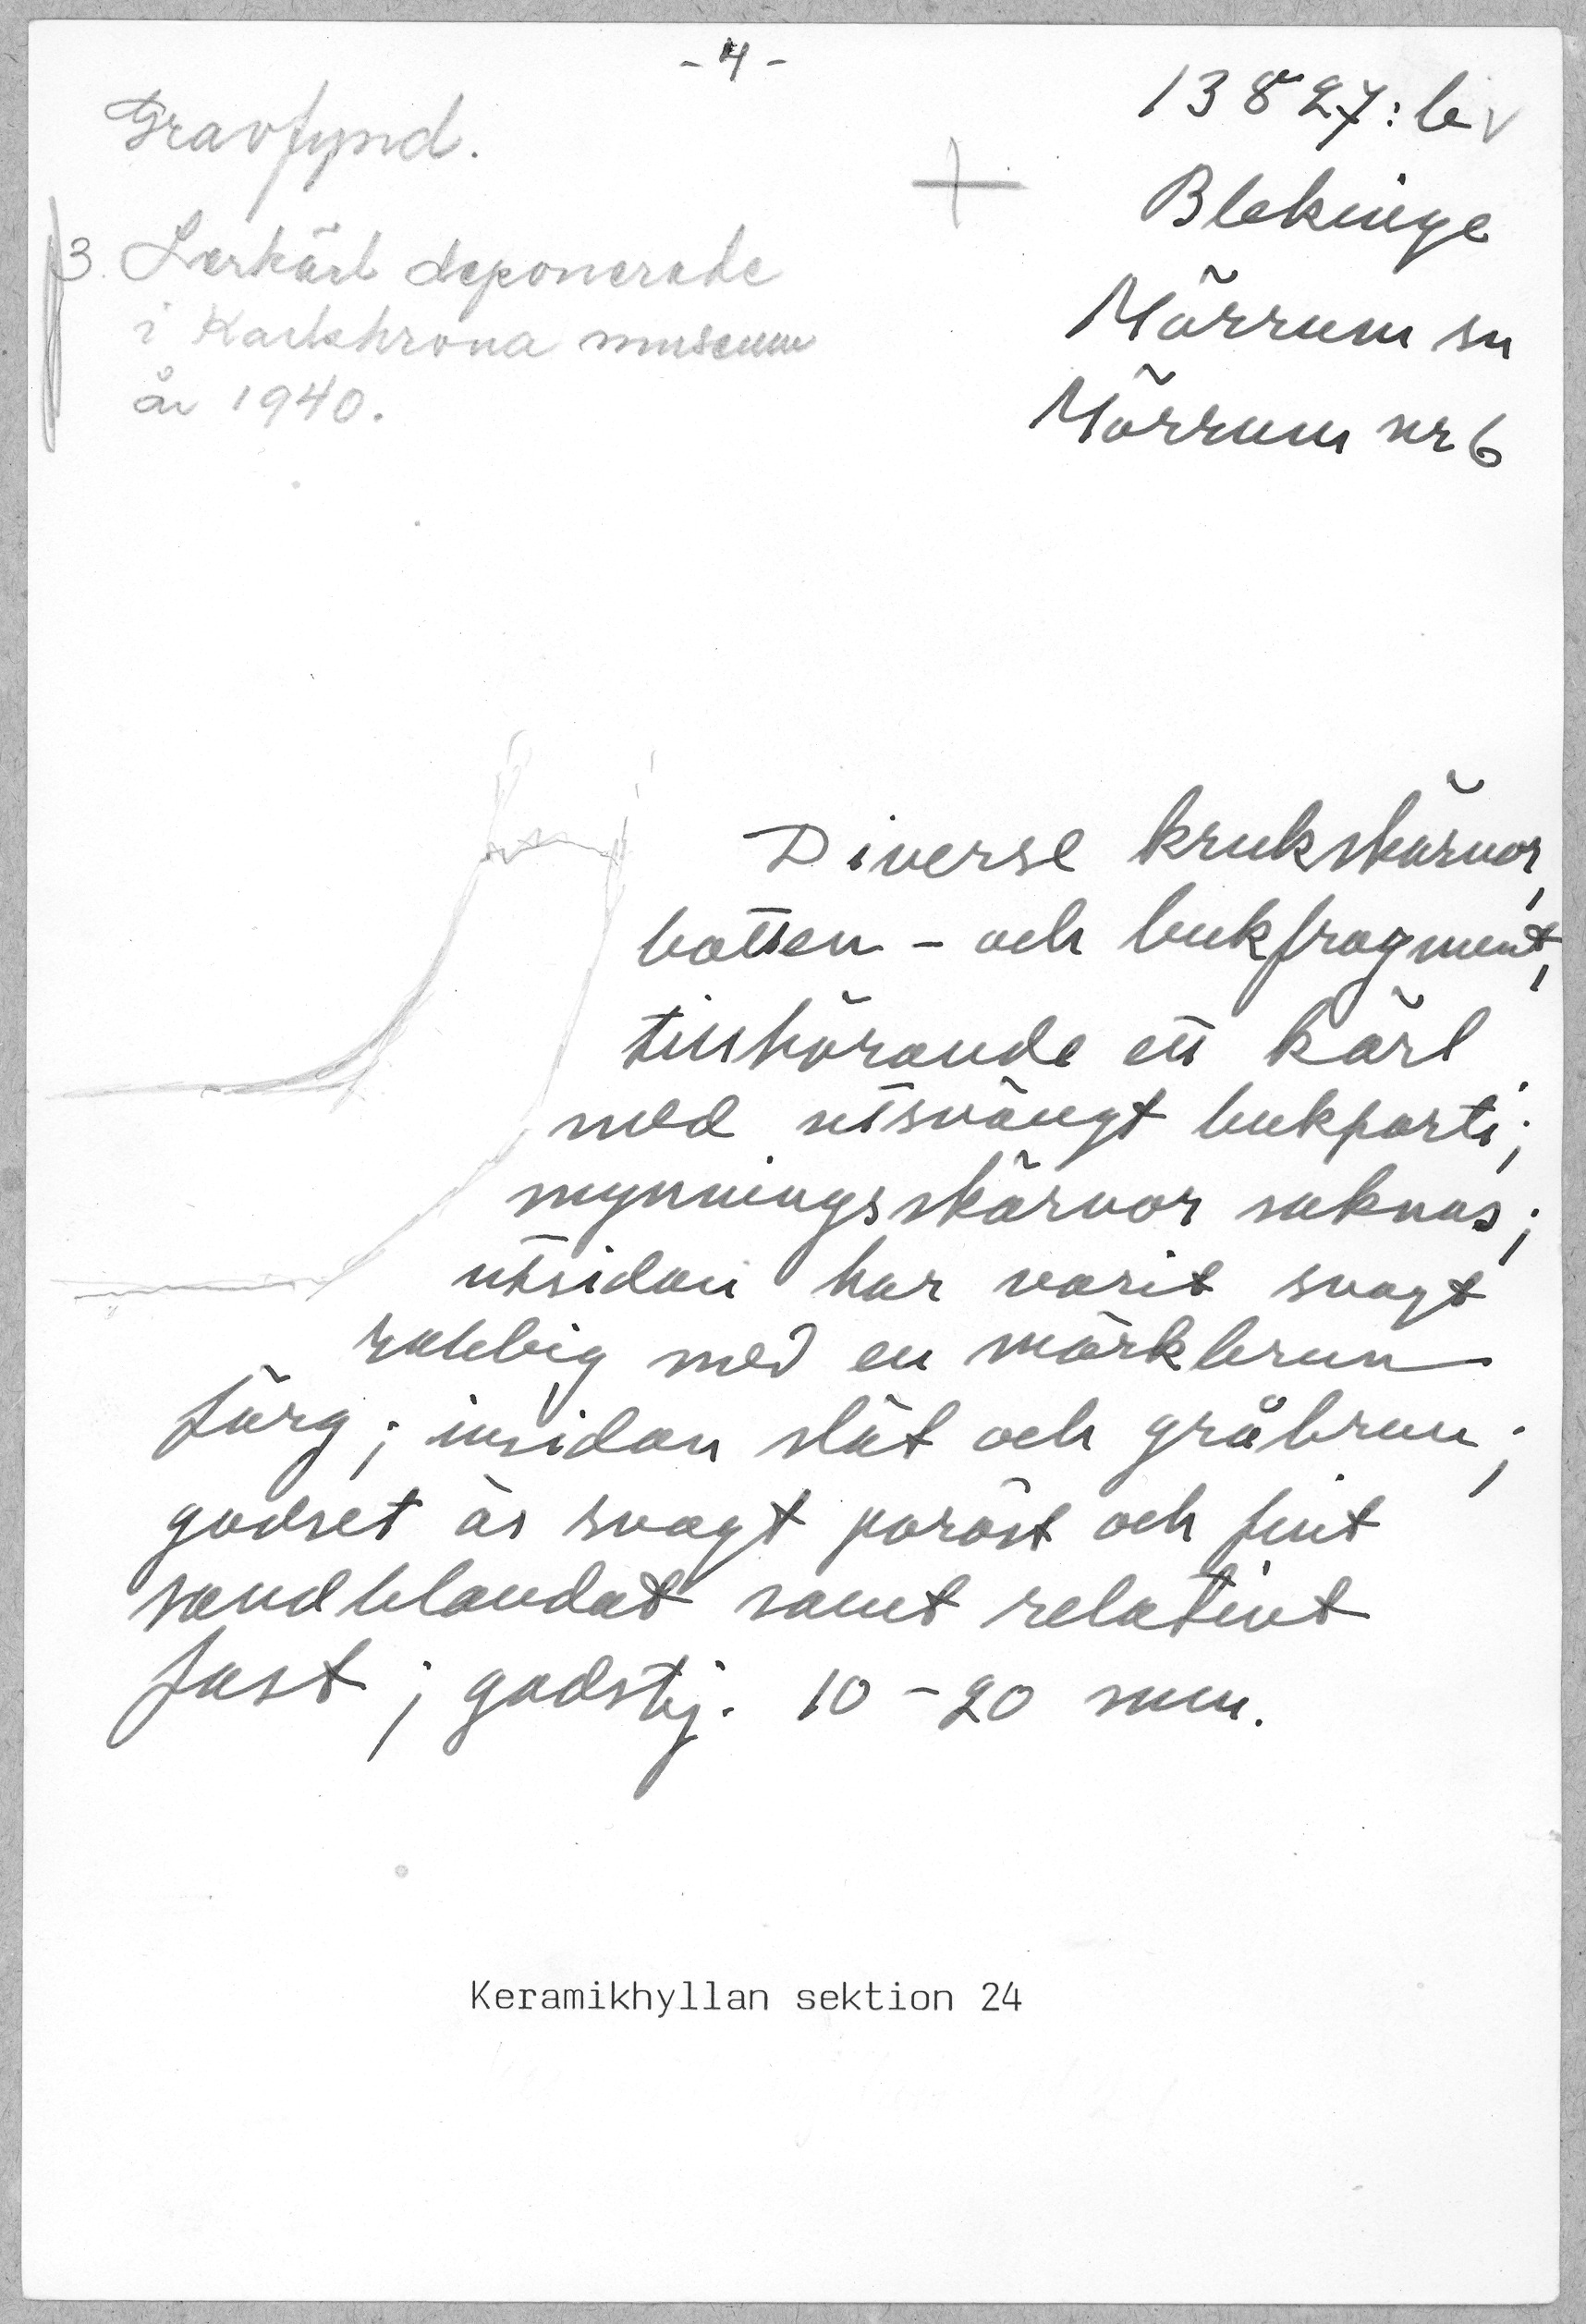 - 4 -
Gravfynd.
13827: b v
Blekinge
3. Lerkärl deponerade
i Karlskrona museum
år 1940.
Mörrum sn
Mörrum nr 6
Diverse krukskärvor,
botten- och bukfragment,
tillhörande ett kärl
med utsvängt bukparti;
mynningsskärvor saknas;
utsidan har varit svagt
rabbig med en mörkbrun
färg; insidan slät och gråbrun;
godset är svagt poröst och fint
sandblandat samt relativt
fast; godstj. 10-20 mm.
Keramikhyllan sektion 24